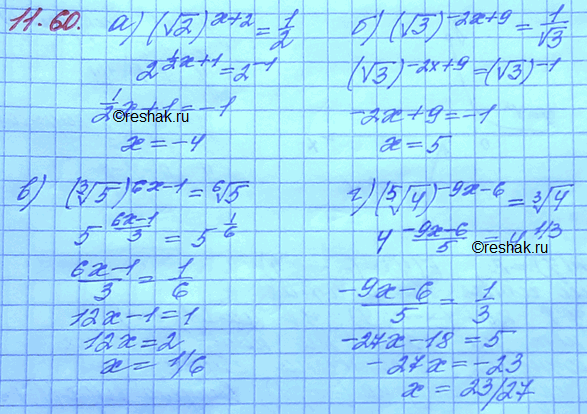 11.60. а) (√2)^{x+2} = 1/2
2^{1/2x+1} = 2^{-1}
1/2x+1 = -1
©reshak.ru
x = -4
б) (√3)^{-2x+9} = 1/√3
(√3)^{-2x+9} = (√3)^{-1}
-2x+9 = -1
©reshak.ru
x = 5
в) (∛5)^{6x-1} = ⁶√5
5^{(6x-1)/3} = 5^{1/6}
(6x-1)/3 = 1/6
12x-1 = 1
12x = 2
x = 1/6
г) (⁵√4)^{-9x-6} = ∛4
4^{(-9x-6)/5} = 4^{1/3}
©reshak.ru
(-9x-6)/5 = 1/3
-27x-18 = 5
-27x = -23
x = 23/27